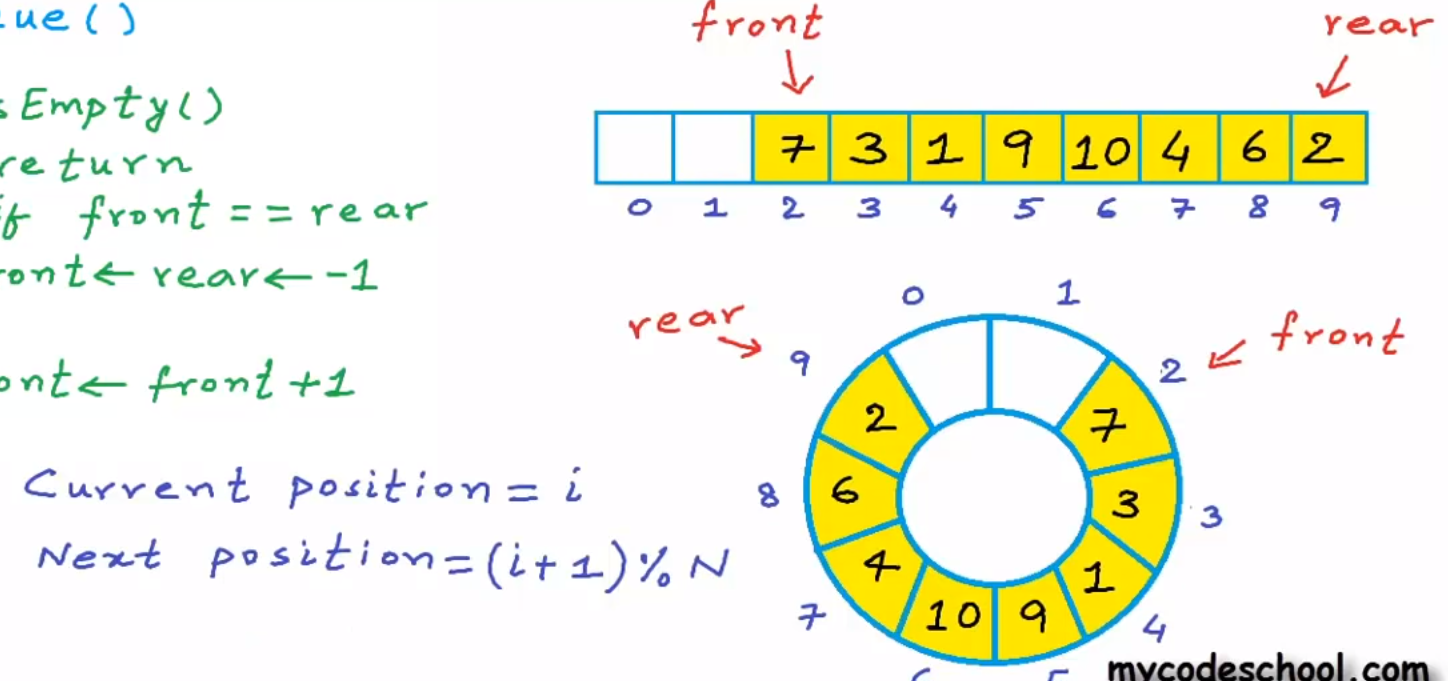 ue()
sEmpty()
return
if front == rear
ont← rear← -1
ont← front +1
Current position = i
Next position = (i+1)% N
front
rear
7 3 1 9 10 4 6 2
0 1 2 3 4 5 6 7 8 9
0 1
rear
front
9 2
2 7
8 6 3 3
4 1
7 10 9 4
mycodeschool.com